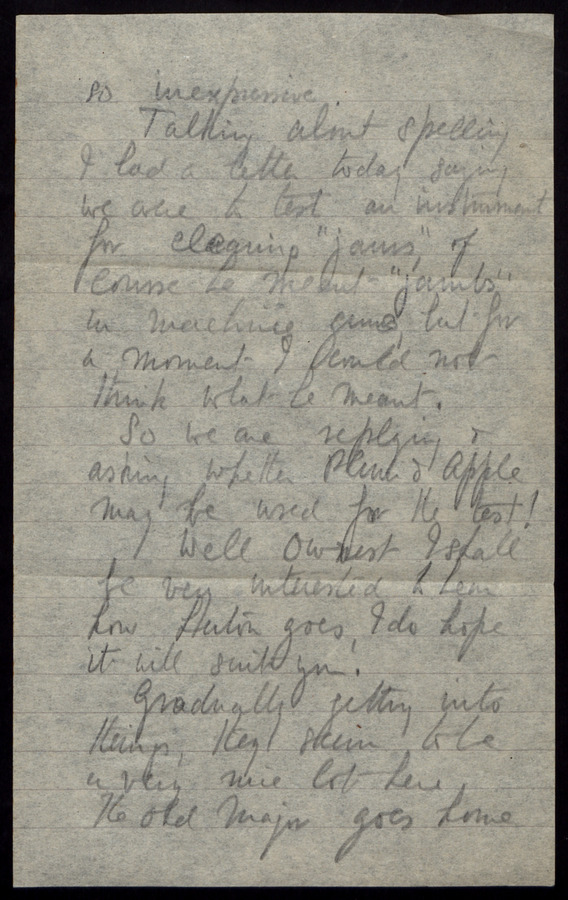 so inexpressive
Talking about spelling
I had a letter today saying
we were to test an instrument
for clearing "jams", of
course he meant "jambs"
in machine guns, but for
a moment I could not
think what he meant.
So we are replying &
asking whether Plum & Apple
may be used for the test!
Well Ownest I shall
be very interested to hear
how goes, I do hope
it will suit you.
Gradually getting into
things, they seem to be
a very nice lot here,
the old Major goes home